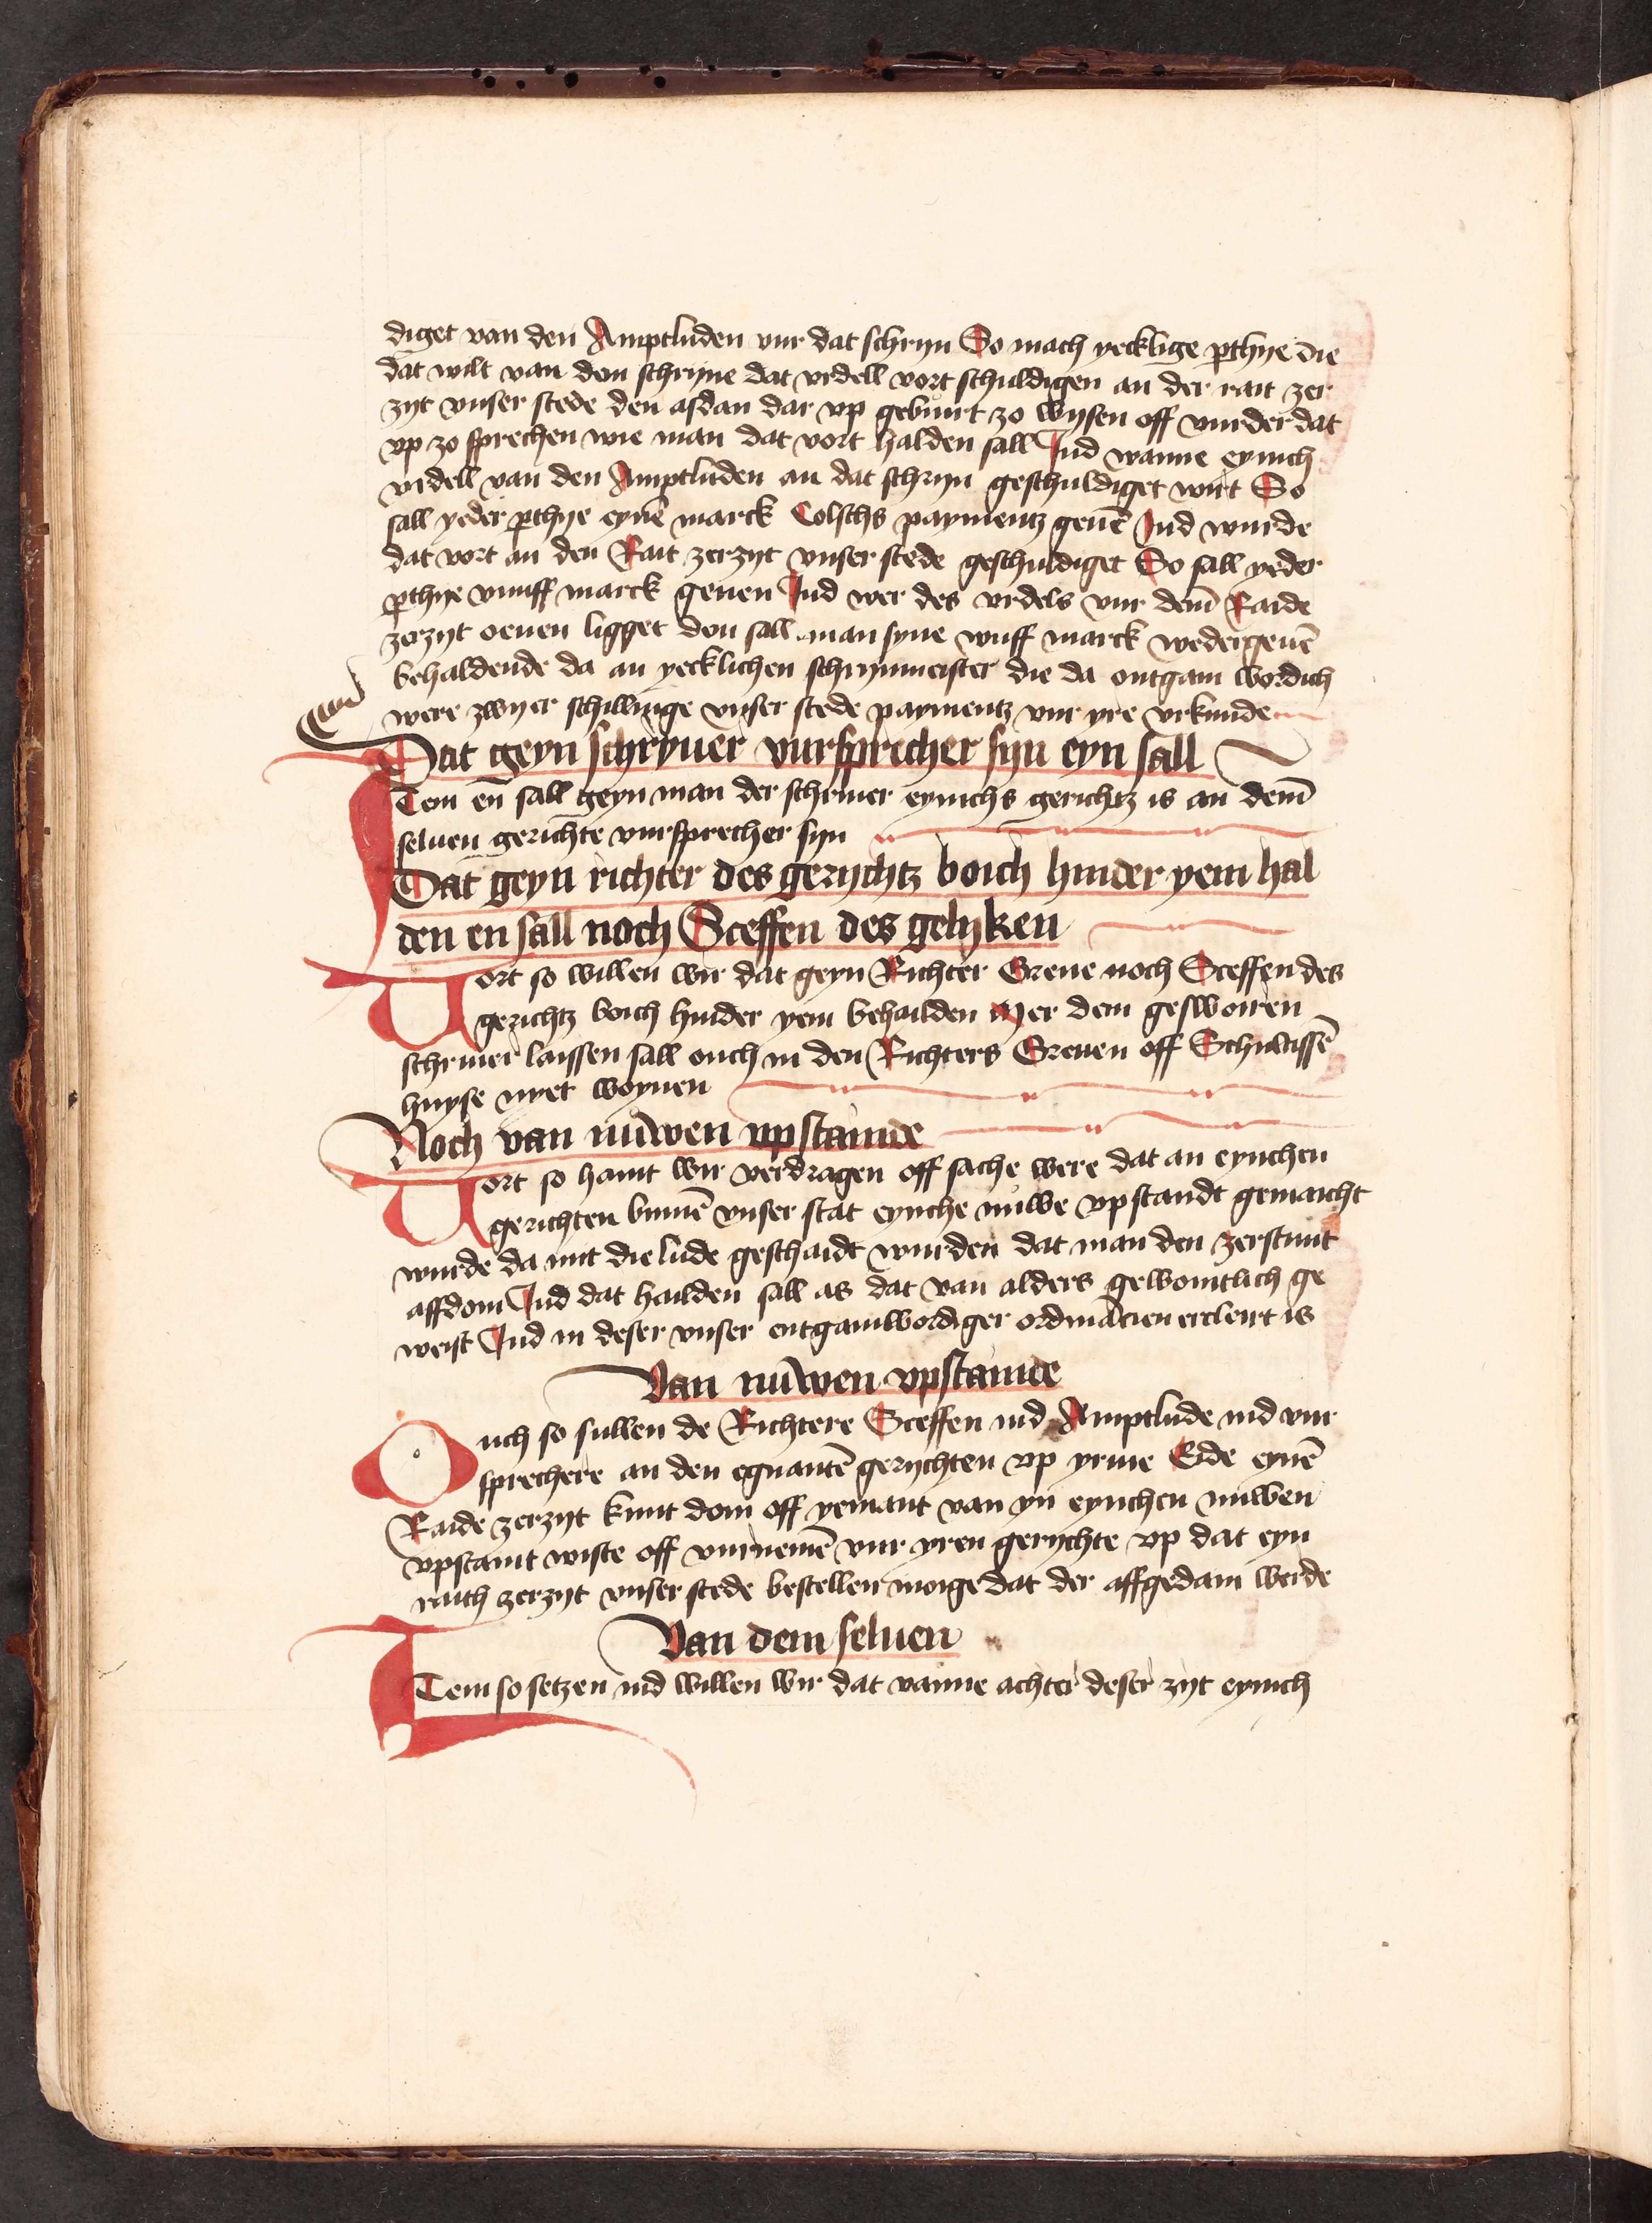 diget van den Amptluden vur dat schryn So mach yecklige ꝑthye die
dat wilt van dem schryne dat vrdell vort schuldigen an der rait zer
zyt vnser stede den asdan dar vp geburt zo wysen off vurder dat
vp zo sprechen wie man dat vort halden sall Ind wanne eynich
vrdell van den Amptluden an dat schryn geschuldiget wirt So
sall yeder ꝑthye eynē marck Colschs paymentz geuē Ind wurde
dat vort an den Rait zerzyt vnser stede geschuldiget So sall yeder
ꝑthye vunff marck geuen Ind wer des vrdels vur dem̄ Raide
zerzyt oeuen ligget dem sall man syne vunff marck wedergeuē
behaldende da an yecklichen schrynmeister die da ontgain wordich
were zwyer schillinge vnser stede paymentz vur yre vrkunde
Dat geyn schryuer vursprecher syn eyn sall
Item en̄ sall geyn man der schriuer eynichs gerichtz is an dem̄
seluen gerichte vursprecher syn
Dat geyn richter des gerychtz boich hinder yem hal
den en sall noch Sceffen des gelyken
Uort so willen wir dat geyn Richter Greue noch Sceffen des
gerichtz boich hinder yem behailden Mer dem geswoiren
schriuer laissen sall ouch in den Richters Greuen off Schultissē
huyse nyet woynen
Noch van nuwen vpstainde
Uort so haint wir verdragen off sache were dat an eynchen
gerichten bynnē vnser stat eynche nuwe vpstandt gemaicht
wurde da mit die lude geschaidt wurden dat man den zerstunt
affdom Ind dat hailden sall as dat van alders gewointlich ge
weist Ind in deser vnser entgainwordiger ordinacien ercleirt is
Van nuwen vpstainde
Ouch so sullen de Richtere Sceffen ind Amptlude ind vur
sprechere an den egnantē gerychten vp yrme Eide eynē
Raide zerzyt kunt doin off yemant van yn eynchen nuwen
vpstaint wiste off vurnemē vur yren gerychte vp dat eyn
raith zerzyt vnser stede bestellen moige dat der affgedain werde
Van dem seluen
Item so setzen ind willen wir dat wanne achter deser zyt eynich